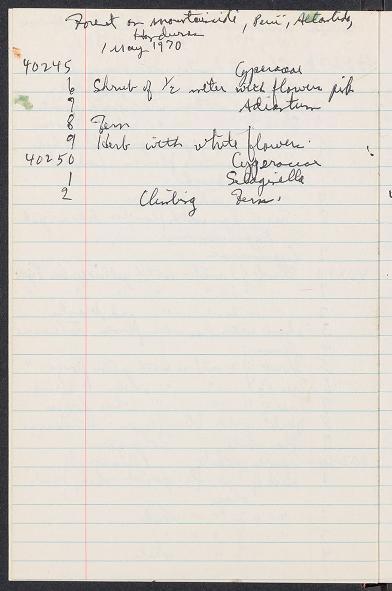 Forest on mountainside, "Peru", Atlantida,
Honduras
1 May 1970
40245 Cyperaceae
6 Shrub of 1/2 meter with flowers pink
7 Adiantum
8 Fern
9 Herb with white flowers.
40250 Cyperaceae
1 Selaginella
2 Climbing Fern.